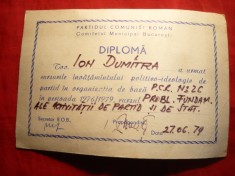 PARTIDUL COMUNIST ROMÂN
Comitetul Municipal Bucureşti
DIPLOMĂ
Tov. ION DUMITRA a urmat
cursurile învăţămîntului politico-ideologic de
partid în organizaţia de bază P.C.R. N22C
în perioada 1976/1979 cursul PROBL. FUNDAM.
ALE ACTIVITĂŢII DE PARTID ŞI DE STAT.
Secretar B.O.B.
27.06.79